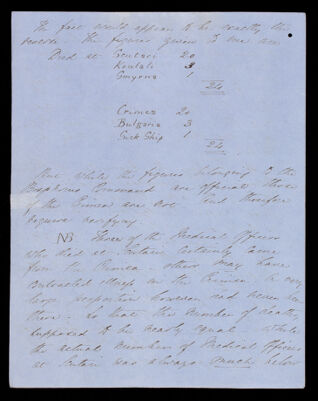 The fact would appear to be exactly the
reverse. The figures given to me are
Died at Scutari 20
Koulali 3
Smyrna 1
24
Crimea 20
Bulgaria 3
Sick Ship 1
24
But while the figures belonging to the
Bosphorus Command are official those
of the Crimea are not and therefore
require verifying.
NB Three of the Medical Officers
who died at Scutari certainly came
from the Crimea. others may have
contracted illness in the Crimea. A very
large proportion however had never been
there. So that the number of deaths
supposed to be nearly equal while
the actual number of Medical Officers
at Scutari was always much below